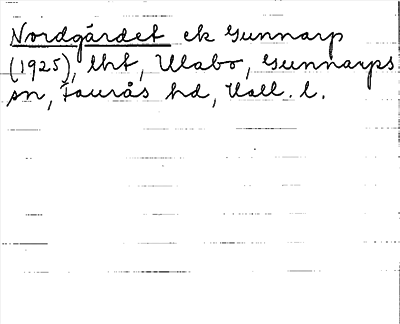 Nordgårdet ek Gunnarp
(1925), lht, Ulabo, Gunnarps
sn, Faurås hd, Hall. l.